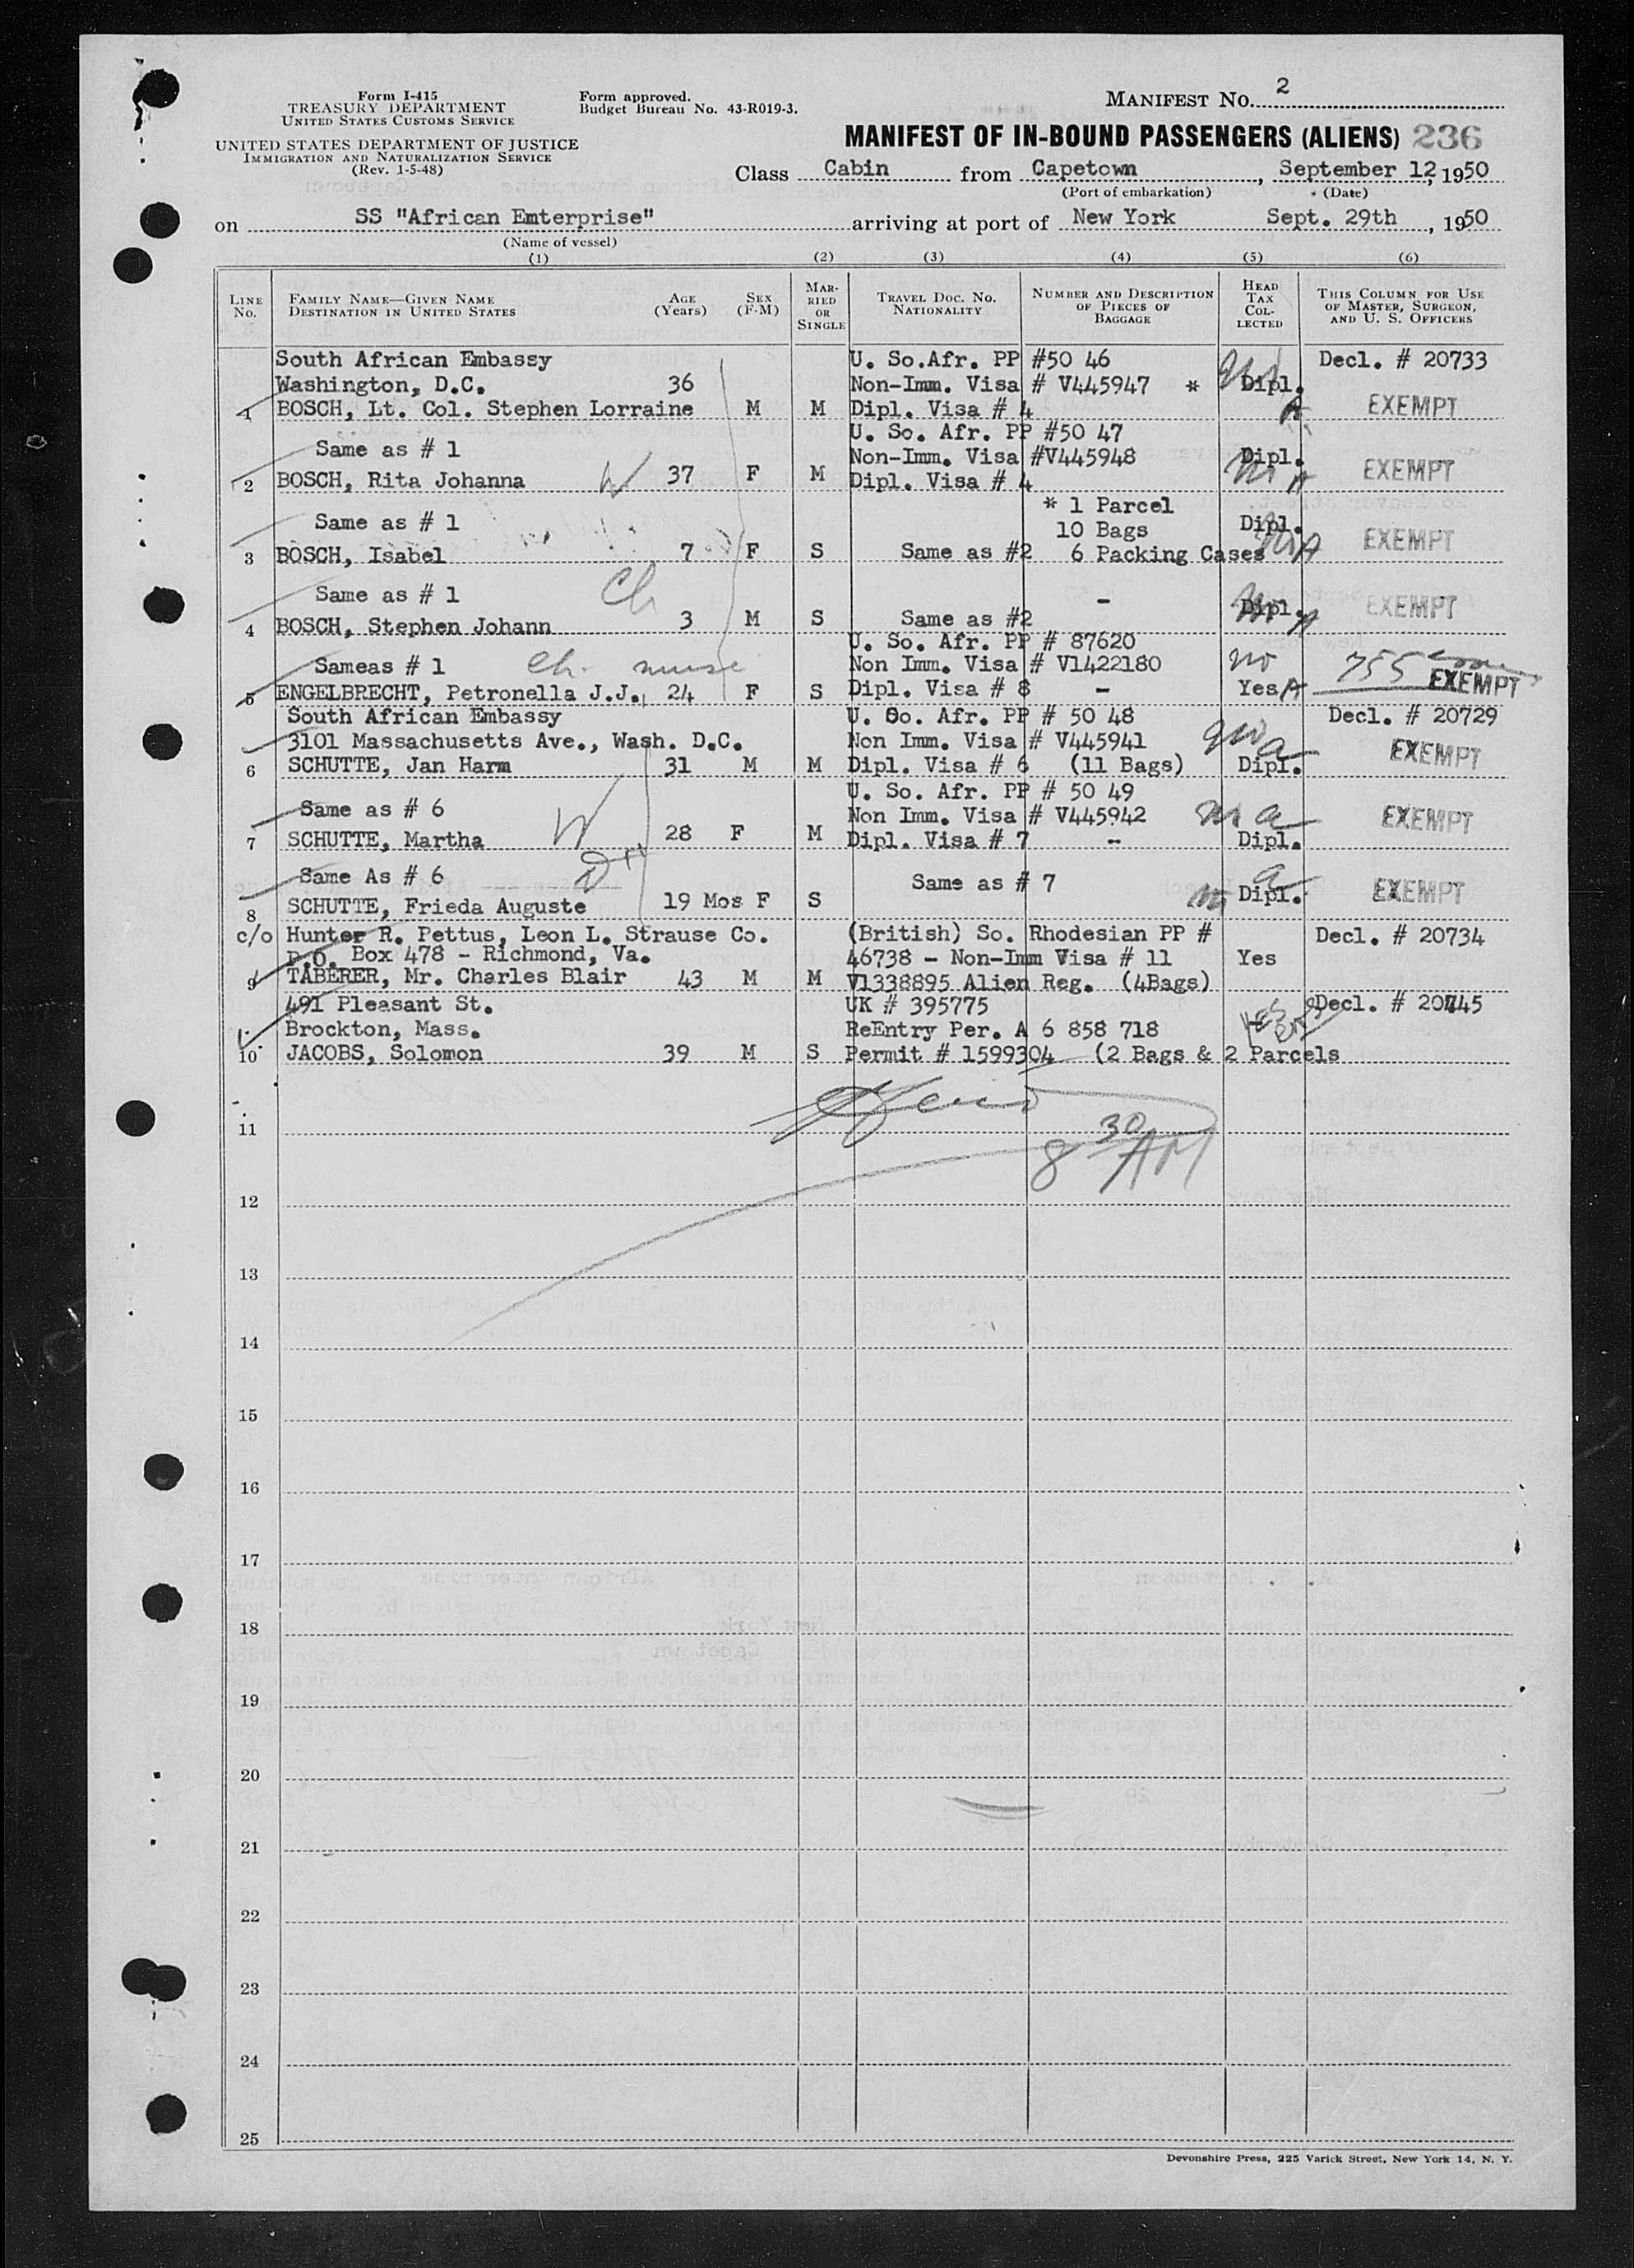 Form I-415
TREASURY DEPARTMENT
UNITED STATES CUSTOMS SERVICE
UNITED STATES DEPARTMENT OF JUSTICE
IMMIGRATION AND NATURALIZATION SERVICE
(Rev. 1-5-48)
Form approved.
Budget Bureau No. 43-R019-3.
MANIFEST NO. 2
MANIFEST OF IN-BOUND PASSENGERS (ALIENS) 236
Class Cabin from Capetown, September 12, 1950
(Port of embarkation) (Date)
on SS "African Emterprise" arriving at port of New York Sept. 29th, 1950
(Name of vessel)
(1) (2) (3) (4) (5) (6)
LINE NO. FAMILY NAME—GIVEN NAME DESTINATION IN UNITED STATES AGE (YEARS) SEX (F-M) MARRIED OR SINGLE TRAVEL DOC. NO. NATIONALITY NUMBER AND DESCRIPTION OF PIECES OF BAGGAGE HEAD TAX COLLECTED THIS COLUMN FOR USE OF MASTER, SURGEON, AND U. S. OFFICERS
South African Embassy U. So.Afr. PP #50 46 Decl. # 20733
Washington, D.C. 36 Non-Imm. Visa # V445947 * Dipl.
1 BOSCH, Lt. Col. Stephen Lorraine M M Dipl. Visa # 4 A EXEMPT
U. So. Afr. PP #50 47
Same as # 1 Non-Imm. Visa #V445948 Dipl.
2 BOSCH, Rita Johanna W 37 F M Dipl. Visa # 4 A EXEMPT
* 1 Parcel
Same as # 1 10 Bags Dipl.
3 BOSCH, Isabel 7 F S Same as #2 6 Packing Cases A EXEMPT
Same as # 1 Ch - Dipl. EXEMPT
4 BOSCH, Stephen Johann 3 M S Same as #2 A
U. So. Afr. PP # 87620
Sameas # 1 Ch. nurse Non Imm. Visa # V1422180 no 755
5 ENGELBRECHT, Petronella J.J. 24 F S Dipl. Visa # 8 - Yes A EXEMPT
South African Embassy U. So. Afr. PP # 50 48 Decl. # 20729
3101 Massachusetts Ave., Wash. D.C. Non Imm. Visa # V445941 a EXEMPT
6 SCHUTTE, Jan Harm 31 M M Dipl. Visa # 6 (11 Bags) Dipl.
U. So. Afr. PP # 50 49
Same as # 6 Non Imm. Visa # V445942 a EXEMPT
7 SCHUTTE, Martha W 28 F M Dipl. Visa # 7 - Dipl.
Same As # 6 Same as # 7 a
8 SCHUTTE, Frieda Auguste 19 Mos F S Dipl. EXEMPT
c/o Hunter R. Pettus, Leon L. Strause Co. (British) So. Rhodesian PP # Decl. # 20734
P.O. Box 478 - Richmond, Va. 46738 - Non-Imm Visa # 11 Yes
9 TABERER, Mr. Charles Blair 43 M M V1338895 Alien Reg. (4Bags)
491 Pleasant St. UK # 395775 Decl. # 20745
Brockton, Mass. ReEntry Per. A 6 858 718
10 JACOBS, Solomon 39 M S Permit # 1599304 (2 Bags & 2 Parcels
11
8 30 AM
12
13
14
15
16
17
18
19
20
21
22
23
24
25
Devonshire Press, 225 Varick Street, New York 14, N. Y.